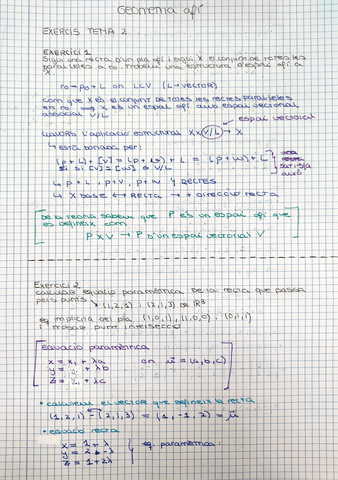 Geometria afí
EXERCIS TEMA 2
EXERCICI 1
Sigui una recta d'un pla afí i sigui X el conjunt de totes les
paral·leles a ro. Trobem una estructura d'espai afí a
X.
ro = po + L on L ⊂ V (L → VECTOR)
Com que X és el conjunt de totes les rectes paral·leles
en ro ⟹ X és un espai afí amb espai vectorial
associat V/L
espai vectorial
LLAVORS l'aplicació estructural X x V/L → X
↳ està donada per:
(p + L) + [v] = (p + v) + L = (p + w) + L
si si [v] = [w] ∈ V/L
una
satisfà
això
↳ p + L, p + v, p + w RECTES
↳ X base ↔ RECTA → + dirección recta
De la teoria sabem que P és un espai afí que
es defineix com
P x V → P d'un espai vectorial V
Exercici 2
calcular equació paramètrica de la recta que passa
pels punts (1,2,1) i (2,1,3) de R³
eq implícita del pla (1,0,1), (1,0,0) i (0,1,1)
i trobar punt intersecció
Equació paramètrica
x = x₁ + λa on ū = (a,b,c)
y = y₁ + λb
z = z₁ + λc
• calculem el vector que defineix la recta
(1,2,1) - (2,1,3) = (1,-1,2) = ū
• equació recta
x = 1 + λ
y = 2 - λ eq. paramètrica:
z = 1 + 2λ